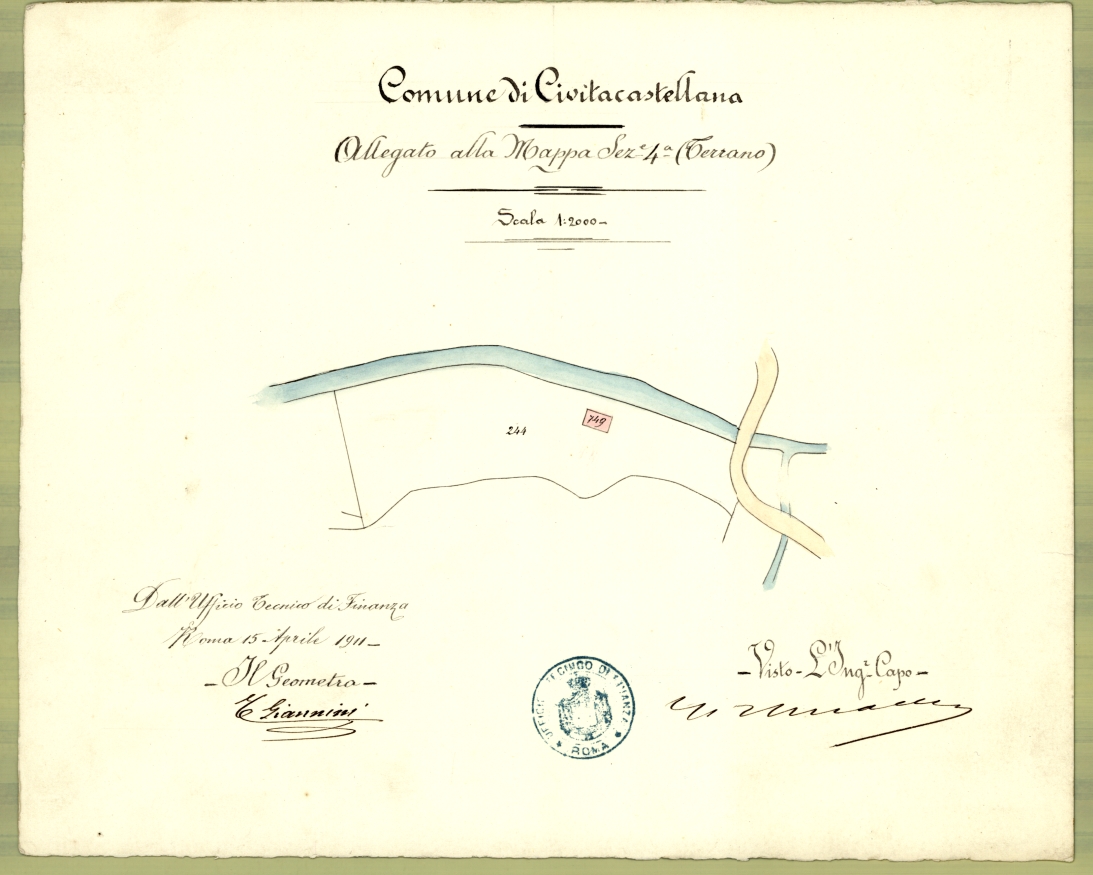 Comune di Civitacastellana
Allegato alla Mappa Sez.e 4a (Terrano)
Scala 1:2000
749
244
Dall'Ufficio Tecnico di Finanza
Roma 15 Aprile 1911
Il Geometra
Giannini
UFFICIO TECNICO DI FINANZA
ROMA
Visto L'Ing.r Capo